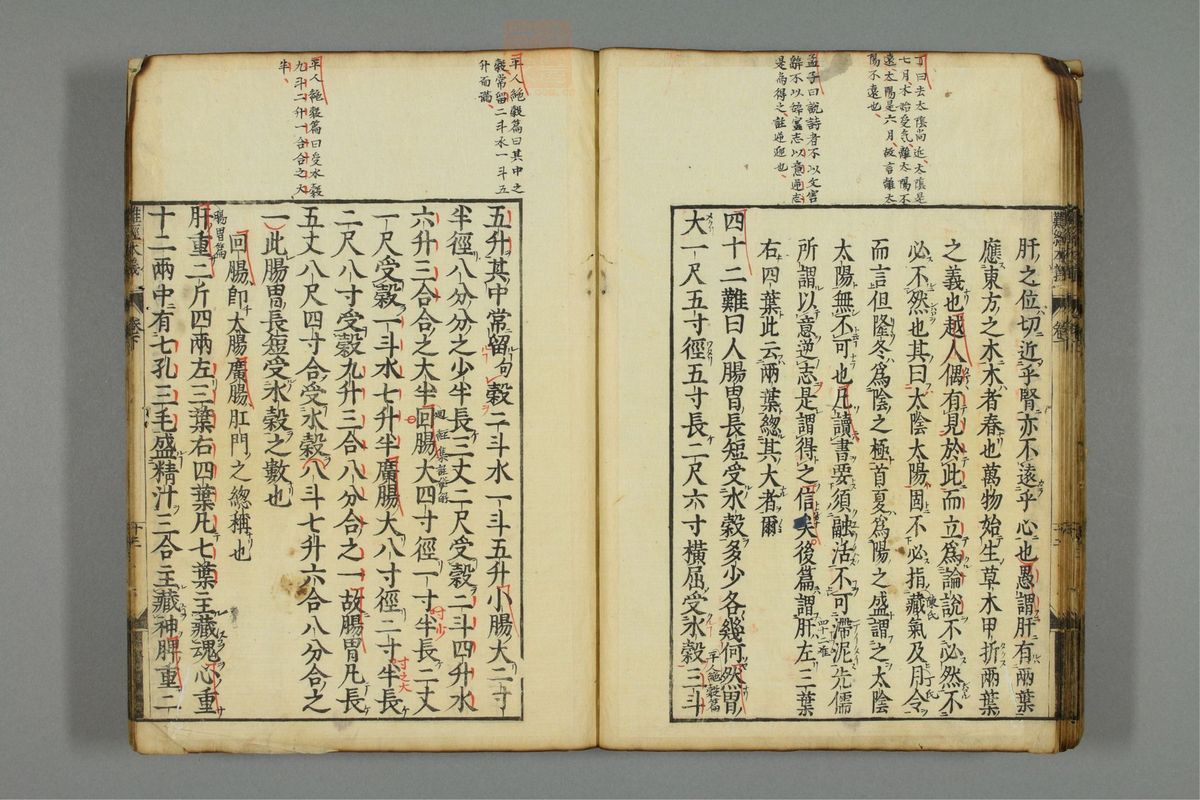 丁曰去太陰尚近太陰是
七月木始受氣離太陽不
遠太陽是六月故言離太
陽不遠也
孟子曰說詩者不以文害
辭不以辭害志以意逆志
是為得之註逆迎也
肝之位切近乎腎亦不遠乎心也愚謂肝有兩葉
應東方之木木者春也萬物始生草木甲折兩葉
之義也越人偶有見於此而立為論說不必然不
必不然也其曰太陰太陽固不必指藏氣及月令
陳氏
丁氏
而言但隆冬為陰之極首夏為陽之盛謂之太陰
太陽無不可也凡讀書要須融活不可滯泥先儒
所謂以意逆志是謂得之信矣後篇謂肝左三葉
四十二難
右四葉此云兩葉總其大者爾
四十二難曰人腸胃長短受水穀多少各幾何然胃
平人絕穀篇
大一尺五寸徑五寸長二尺六寸橫屈受水穀三斗
平人絕穀篇曰其中之
穀常留二斗水一斗五
升而滿
平人絕穀篇曰受水穀
九斗二升一合合之大
半
五升其中常留穀二斗水一斗五升小腸大二寸
半徑八分分之少半長三丈二尺受穀二斗四升水
六升三合合之大半回腸大四寸徑一寸半長二丈
寸少
一尺受穀一斗水七升半廣腸大八寸徑二寸半長
寸之大
二尺八寸受穀九升三合八分合之一故腸胃凡長
五丈八尺四寸合受水穀八斗七升六合八分合之
一此腸胃長短受水穀之數也
回腸即大腸廣腸肛門之總稱也
腸胃篇
肝重二斤四兩左三葉右四葉凡七葉主藏魂心重
十二兩中有七孔三毛盛精汁三合主藏神脾重二